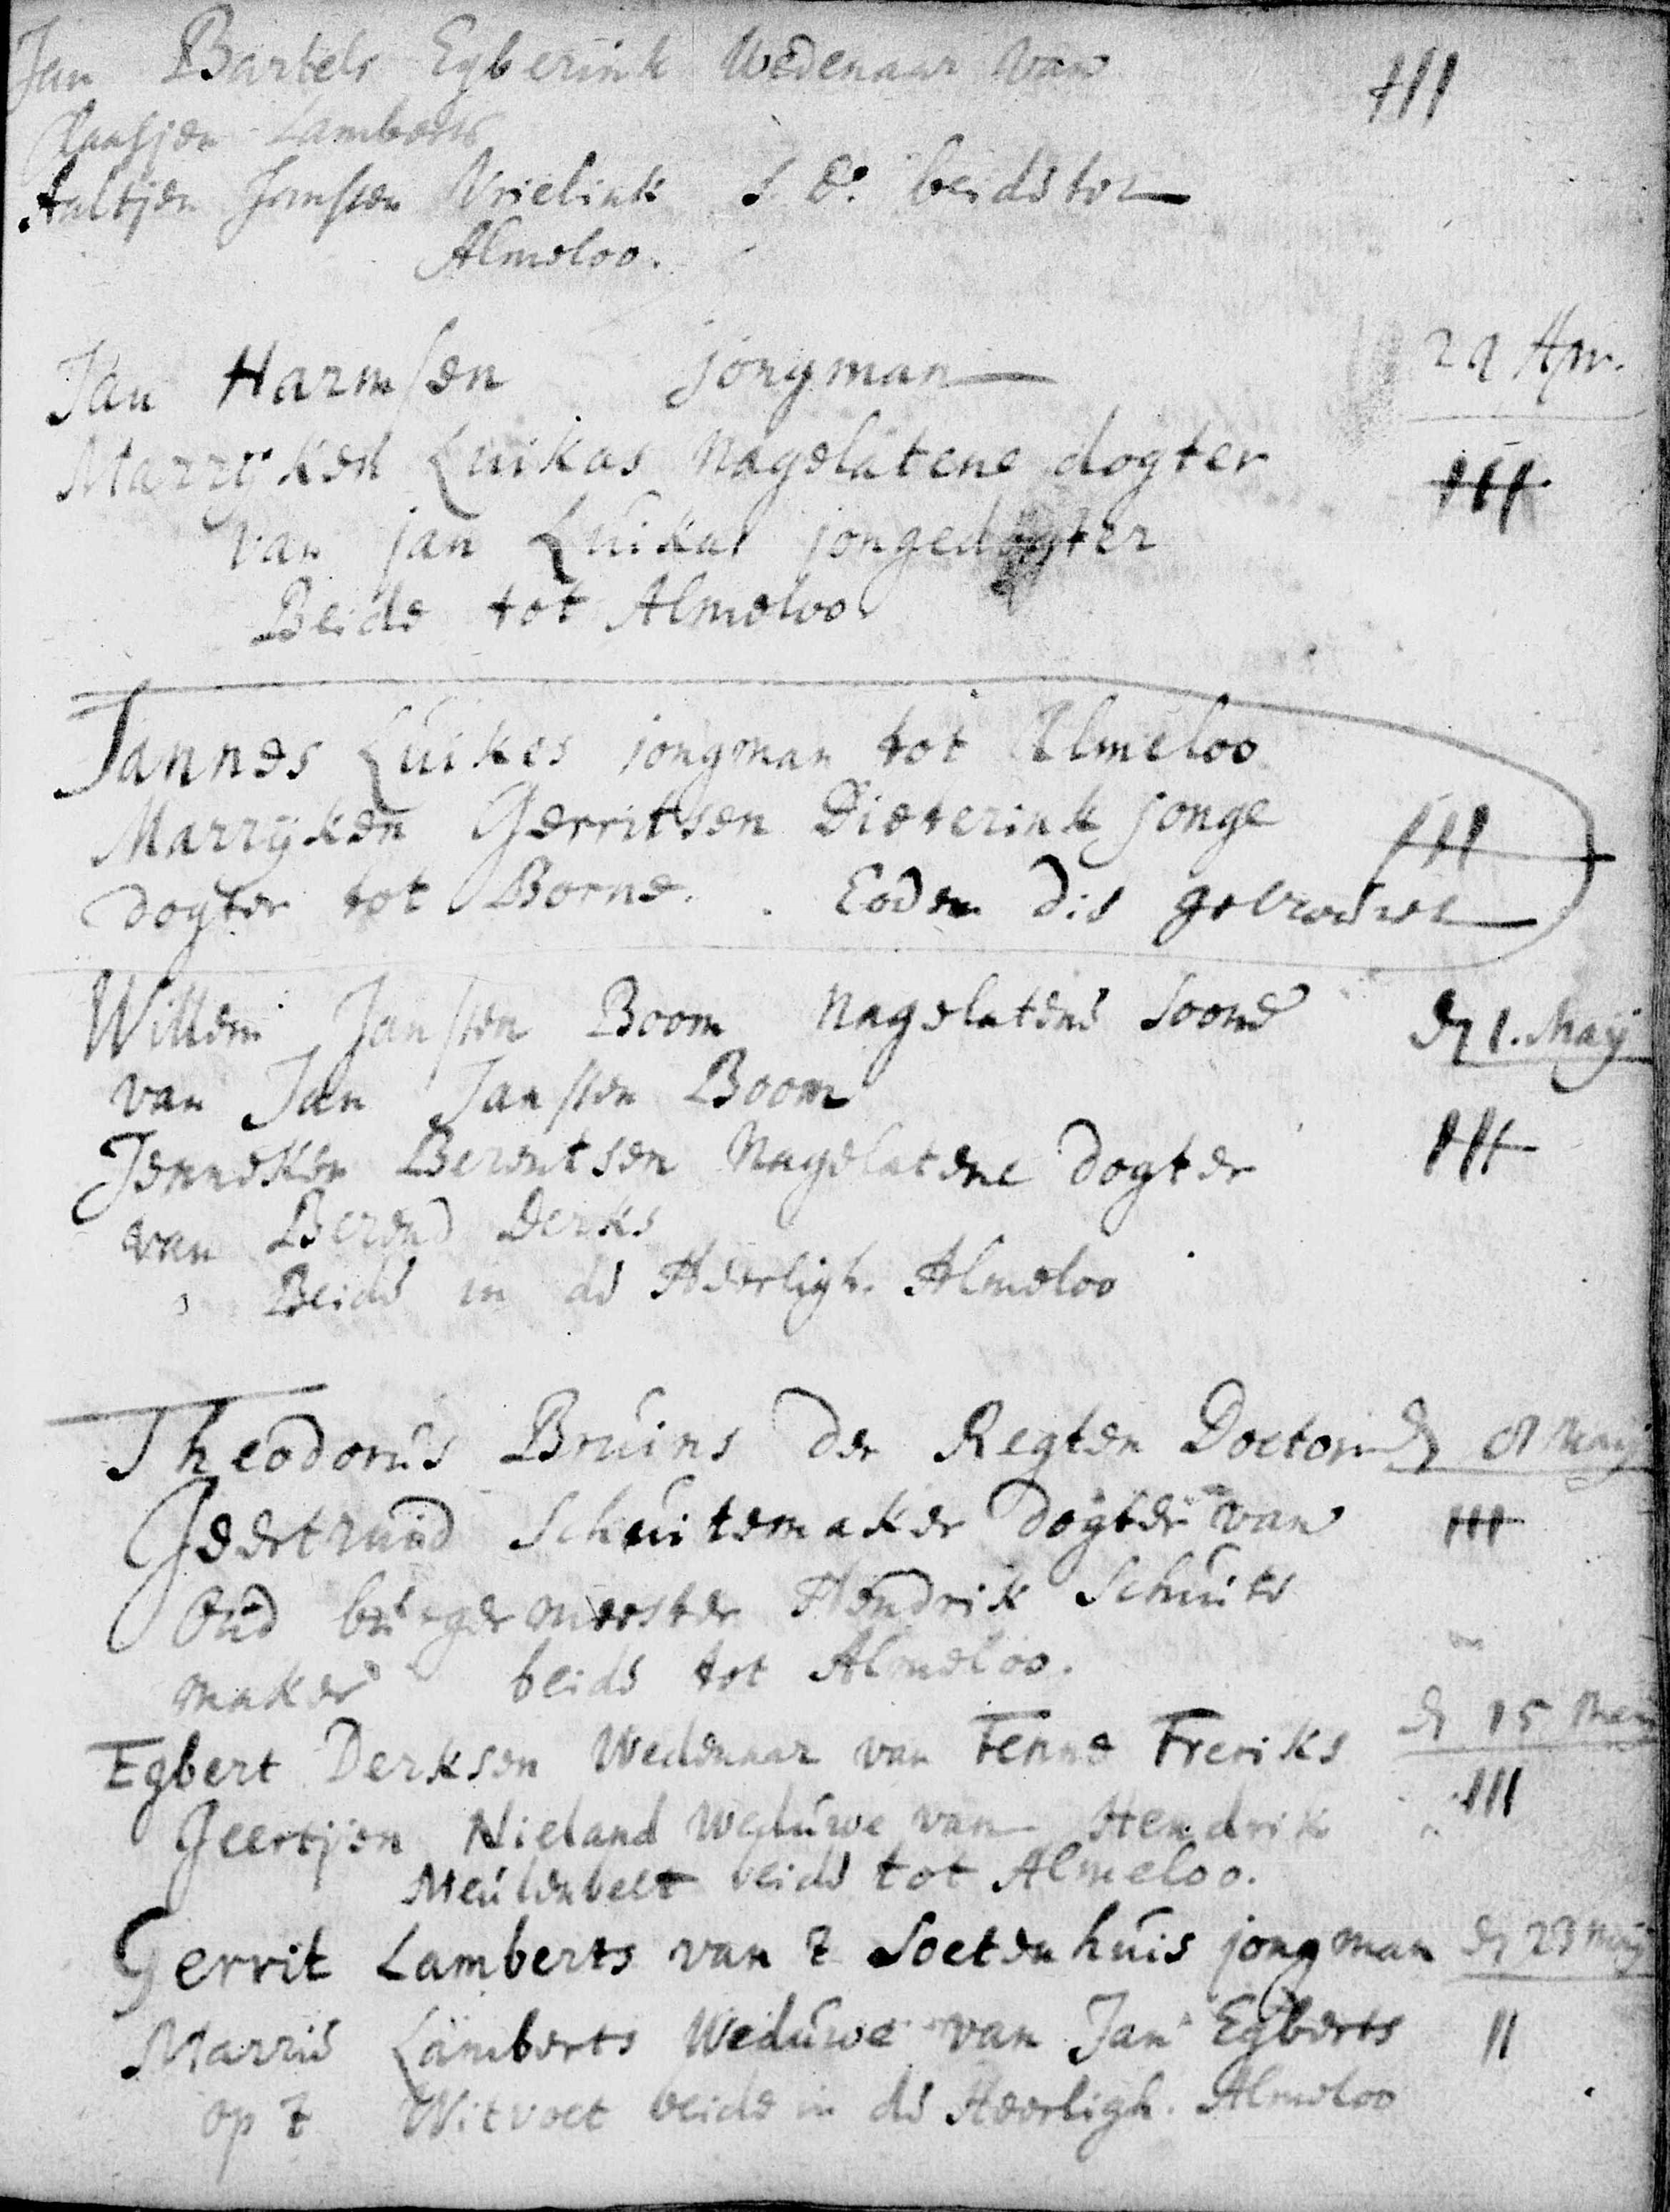 Jan Bartels Egberink Wedenaar van III
Lamberts
Aaltjen Janssen Vrielink J. D. beide tot
Almeloo.
Jan Harmsen jongman 24 Apr.
Marrijken Luikas Nagelatene dogter III
van jan Luikas jongedogter
Beide tot Almeloo
Jannes Luikes jongman tot Almeloo
Marrijken Gerritsen Dieterink jonge III
dogter tot Borne. Eodem die getrouwet
Willem Janssen Boom Nagelatene soone den 1. Maij
van Jan Janssen Boom
Jenneken Berentsen Nagelatene dogter III
van Berend Derks
Beide in de Heerligh. Almeloo
Theodorus Bruins der Regten Doctor den 8 Maij
Geertruid Schuitemaker dogter van III
Oud burgermeester Hendrik Schuite
maker beide tot Almeloo.
Egbert Derksen Wedenaar van Fenne Freriks den 15 Maij
Geertjen Nieland Weduwe van Hendrik III
Meulenbelt beide tot Almeloo.
Gerrit Lamberts van t Soetenhuis jongman den 23 Maij
Marrie Lamberts Weduwe van Jan Egberts II
op t Witvoet beide in de Heerligh. Almeloo